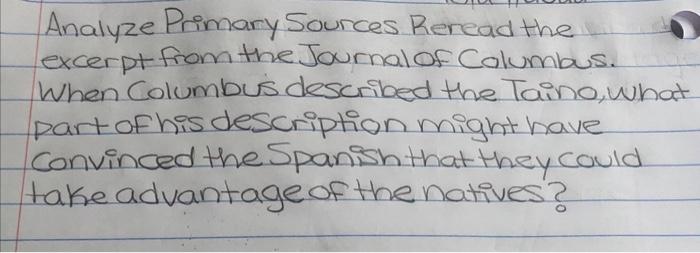 Analyze Primary Sources Reread the
excerpt from the Journal of Columbus.
When Columbus described the Taino, what
part of his description might have
convinced the Spanish that they could
take advantage of the natives?